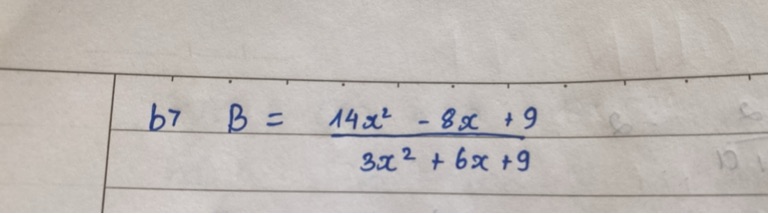 b7 B = 14x² - 8x + 9
3x² + 6x + 9